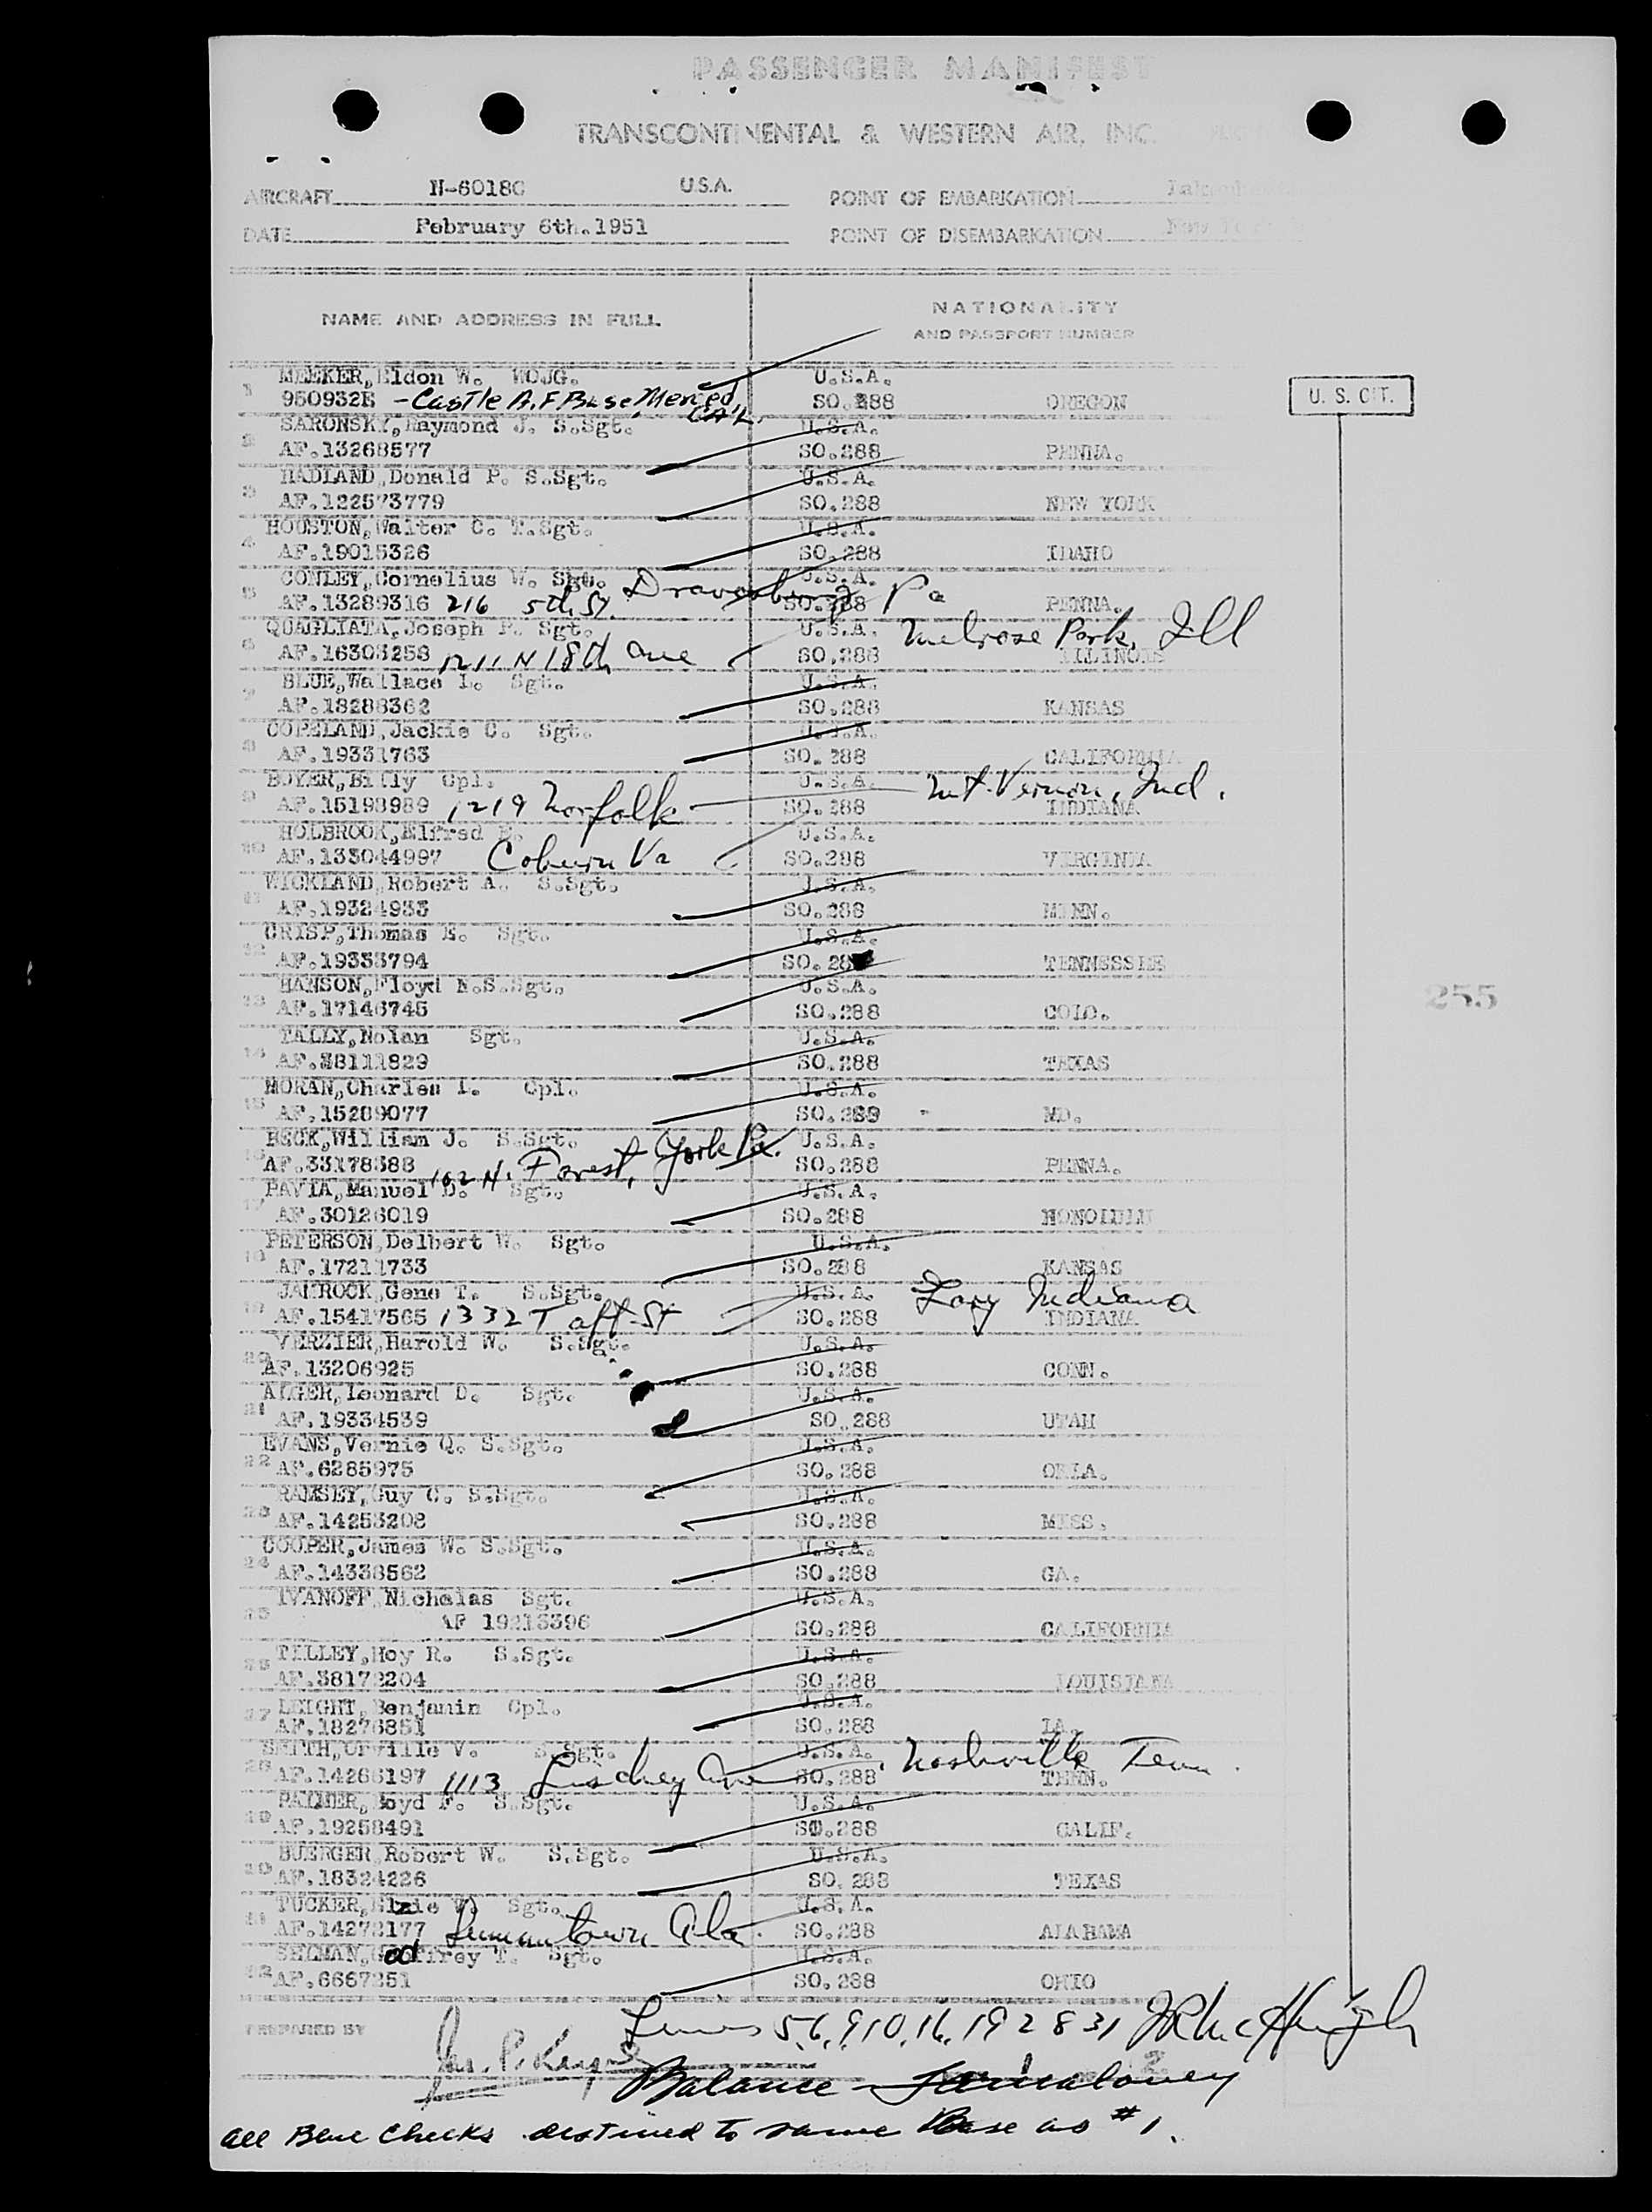 PASSENGER MANIFEST
TRANSCONTINENTAL & WESTERN AIR, INC.
AIRCRAFT N-6018C U.S.A. POINT OF EMBARKATION
DATE February 6th.1951 POINT OF DISEMBARKATION New York
NAME AND ADDRESS IN FULL
NATIONALITY
AND PASSPORT NUMBER
1 MEEKER, Eldon W. WOJG. U.S.A.
950932E - Castle A.F Base, Merced, CAL. SO.288 OREGON
U. S. CIT.
2 SARONSKY, Raymond J. S.Sgt. U.S.A.
AF.13268577 SO.288 PENNA.
3 HADLAND, Donald P. S.Sgt. U.S.A.
AF.122573779 SO.288 NEW YORK
4 HOUSTON, Walter C. T.Sgt. U.S.A.
AF.19015326 SO.288 IDAHO
5 CONLEY, Cornelius W. Sgt. U.S.A.
AF.13289316 216 5th St. Dravosburg Pa SO.288 PENNA.
6 QUAGLIATA, Joseph P. Sgt. U.S.A. Melrose Park, Ill
AF.16303258 1211 N 18th Ave SO.288 ILLINOIS
7 BLUE, Wallace L. Sgt. U.S.A.
AF.18288362 SO.288 KANSAS
8 COPELAND, Jackie C. Sgt. U.S.A.
AF.19331763 SO.288 CALIFORNIA
9 BOYER, Billy Cpl. U.S.A. Mt. Vernon, Ind.
AF.15198989 1219 Norfolk SO.288 INDIANA
10 HOLBROOK, Elfred U.S.A.
AF.133044997 Coburn Va SO.288 VIRGINIA
11 WICKLAND, Robert A. S.Sgt. U.S.A.
AF.19324933 SO.288 MINN.
12 CRISP, Thomas E. Sgt. U.S.A.
AF.19333794 SO.28 TENNESSEE
13 HANSON, Floyd N.S.Sgt. U.S.A.
AF.17146745 SO.288 COLO.
255
14 TALLY, Nolan Sgt. U.S.A.
AF.38111829 SO.288 TEXAS
15 MORAN, Charles L. Cpl. U.S.A.
AF.15289077 SO.289 MD.
16 BECK, William J. S.Sgt. U.S.A.
AF.33178388 102 N. Forest, York Pa. SO.288 PENNA.
17 PAVIA, Manuel D. Sgt. U.S.A.
AF.30126019 SO.288 HONOLULU
18 PETERSON, Delbert W. Sgt. U.S.A.
AF.17211733 SO.288 KANSAS
19 JAMROCK, Gene T. S.Sgt. U.S.A. Gary Indiana
AF.15417565 1332 Taft St SO.288 INDIANA
20 VERZIER, Harold W. S.Sgt. U.S.A.
AF.13206925 SO.288 CONN.
21 ALGER, Leonard D. Sgt. U.S.A.
AF.19334539 SO.288 UTAH
22 EVANS, Vernie Q. S.Sgt. U.S.A.
AF.6285975 SO.288 OKLA.
23 RAMSEY, Guy C. S.Sgt. U.S.A.
AF.14253208 SO.288 MISS.
24 COOPER, James W. S.Sgt. U.S.A.
AF.14338562 SO.288 GA.
25 IVANOFF, Nicholas Sgt. U.S.A.
AF 19213396 SO.288 CALIFORNIA
26 TILLEY, Hoy R. S.Sgt. U.S.A.
AF.38172204 SO.288 LOUISIANA
27 LEIGHT, Benjamin Cpl. U.S.A.
AF.18276851 SO.288 LA.
28 SMITH, Orville V. S.Sgt. U.S.A. Nashville Tenn.
AF.14266197 1113 Ave SO.288 TENN.
29 PALMER, Boyd F. S.Sgt. U.S.A.
AF.19258491 SO.288 CALIF.
30 BUERGER, Robert W. S.Sgt. U.S.A.
AF.18324226 SO.288 TEXAS
31 TUCKER, Elzie Sgt. U.S.A.
AF.14272177 Ala. SO.288 ALABAMA
32 Godfrey T. Sgt. U.S.A.
AF.6667251 SO.288 OHIO
PREPARED BY
Lines 5,6,9,10,16,19 28 31 McHugh
Balance - Maloney
All Blue Checks destined to same Base as # 1.